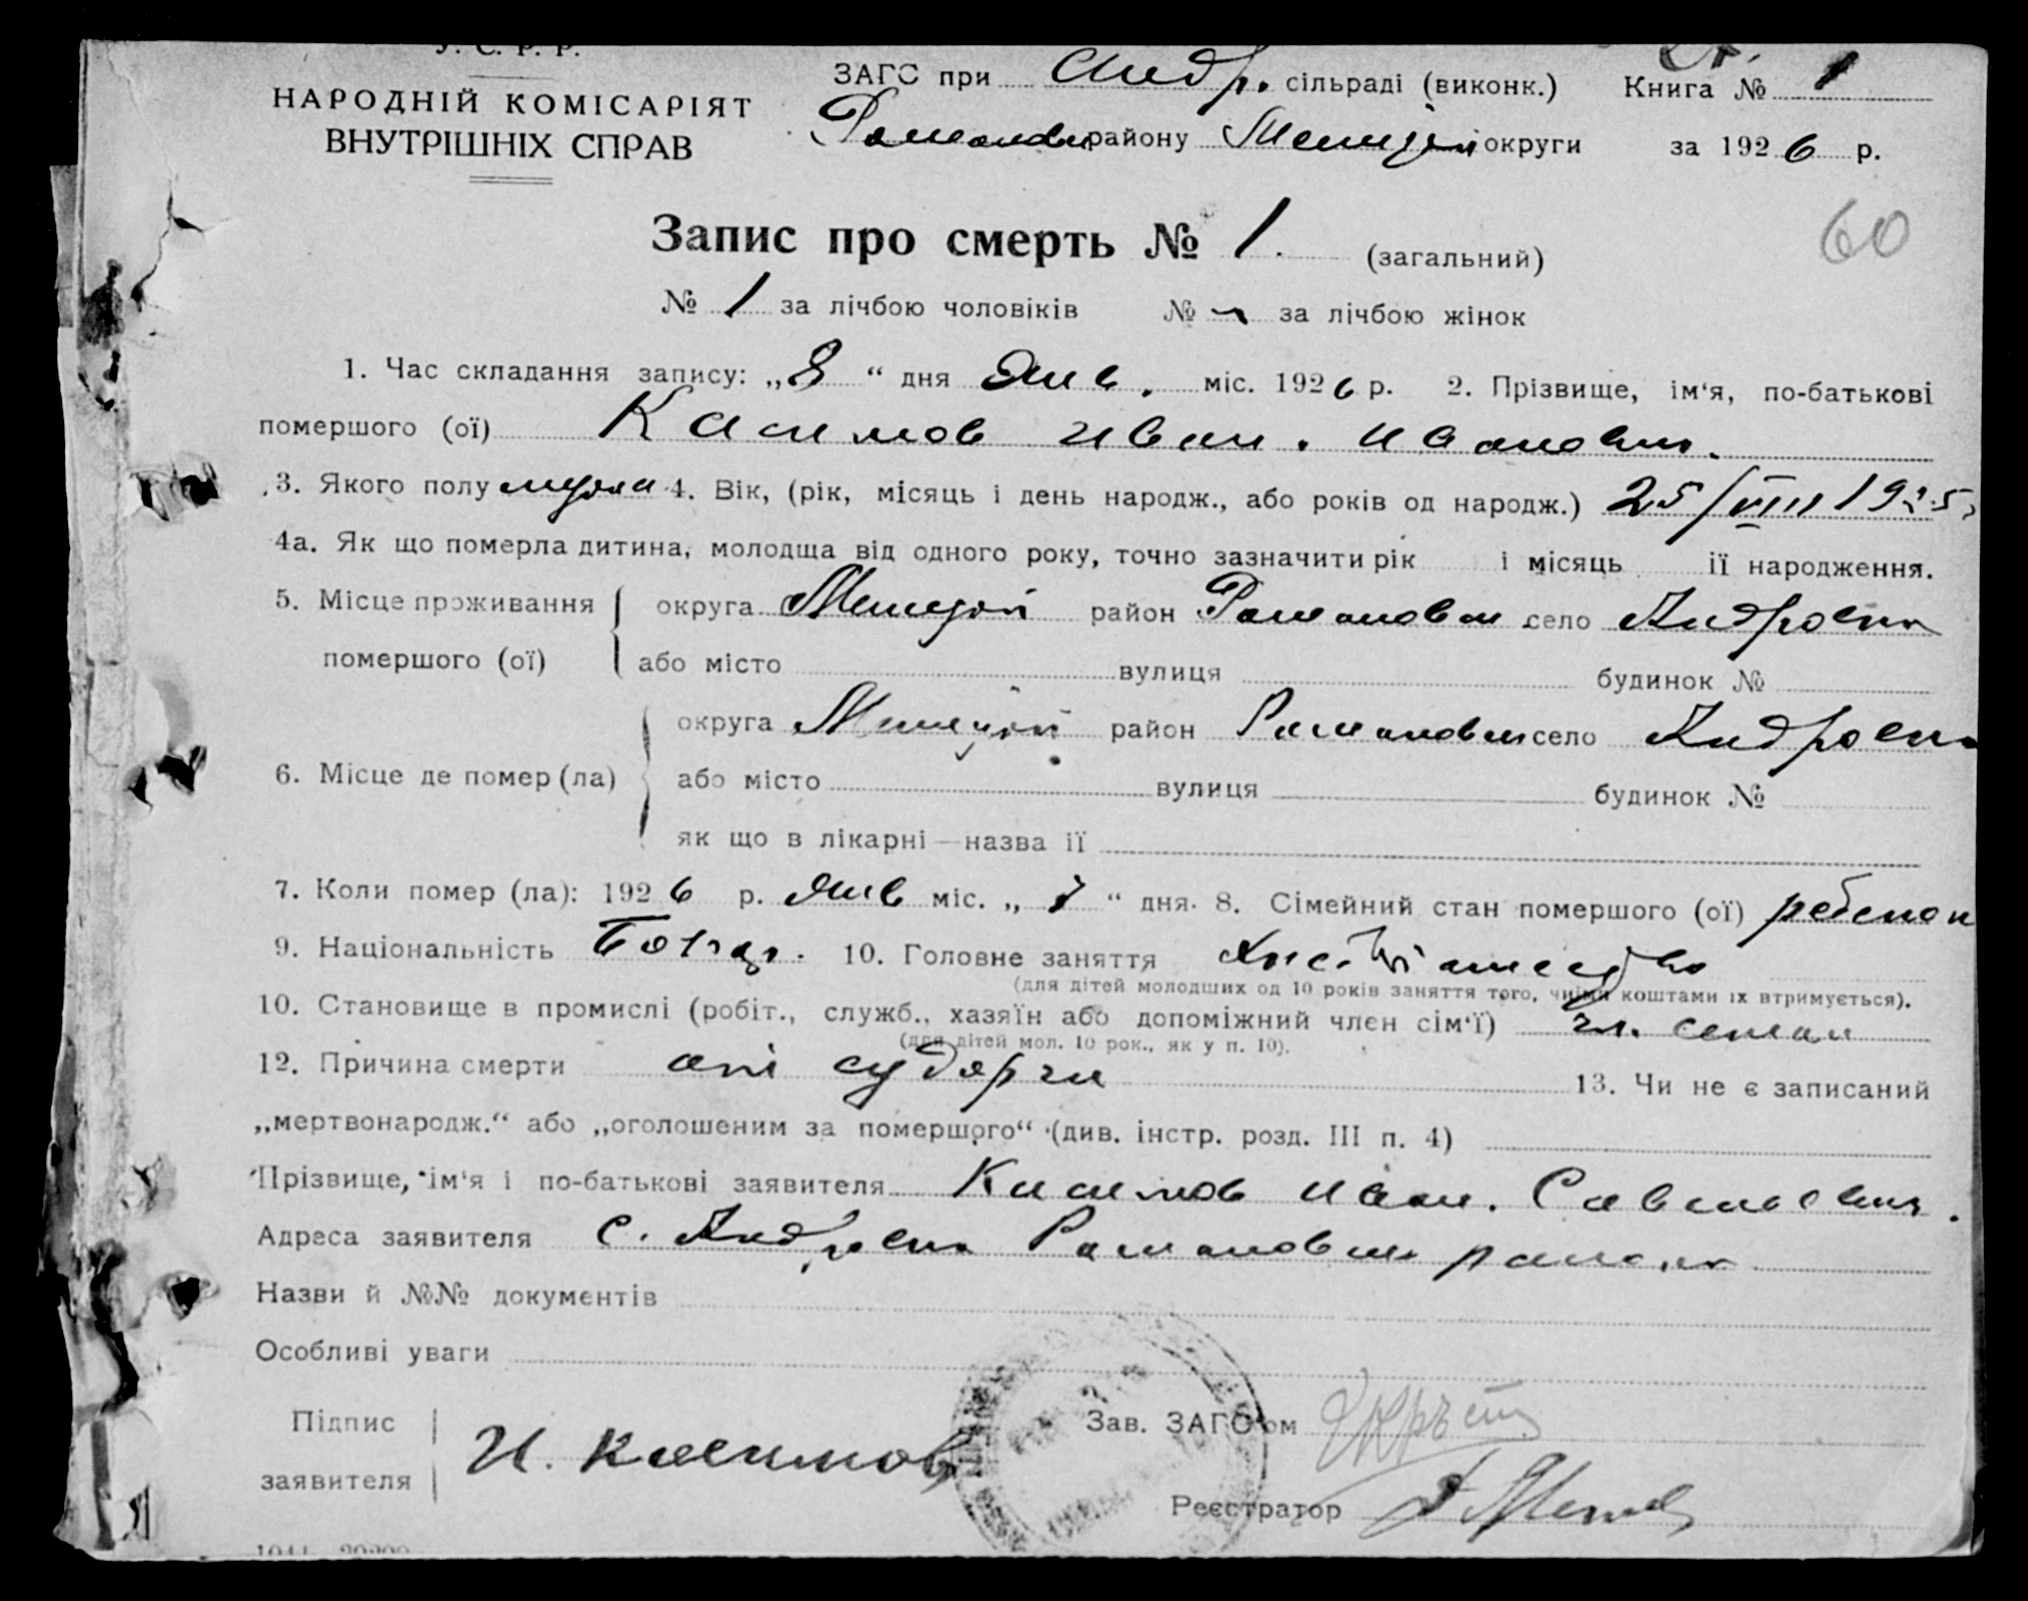 У. С. Р. Р.
НАРОДНІЙ КОМІСАРІЯТ
ВНУТРІШНІХ СПРАВ
ЗАГС при Андр. сільраді (виконк.) Книга № 1
району округи за 1926 р.
60
Запис про смерть № 1. (загальний)
№ 1 за лічбою чоловіків № - за лічбою жінок
1. Час складання запису: „8“ дня Янв. міс. 1926 р. 2. Прізвище, ім‘я, по-батькові
помершого (ої) Касимов Иван. Иванович.
3. Якого полу 4. Вік, (рік, місяць і день народж., або років од народж.) 25/VIII 1925
4а. Як що померла дитина, молодща від одного року, точно зазначити рік і місяць ії народження.
5. Місце проживання округа район Романовск село
помершого (ої) або місто вулиця будинок №
округа район Романовск село
6. Місце де помер (ла) або місто вулиця будинок №
як що в лікарні — назва ії
7. Коли помер (ла): 1926 р. Янв міс. „ “ дня. 8. Сімейний стан помершого (ої) ребенок
9. Національність 10. Головне заняття
(для дітей молодших од 10 років заняття того, чиїми коштами їх втримується).
10. Становище в промислі (робіт., служб., хазяїн або допоміжний член сім‘ї) чл. семьи
(для дітей мол. 10 рок., як у п. 10).
12. Причина смерти от судорги 13. Чи не є записаний
„мертвонародж.“ або „оголошеним за помершого“ (див. інстр. розд. III п. 4)
Прізвище, ім‘я і по-батькові заявителя Касимов Иван. Савельевич.
Адреса заявителя с. Романовск района
Назви й №№ документів
Особливі уваги
Підпис
заявителя И. Касимов
Зав. ЗАГС‘ом
Реєстратор